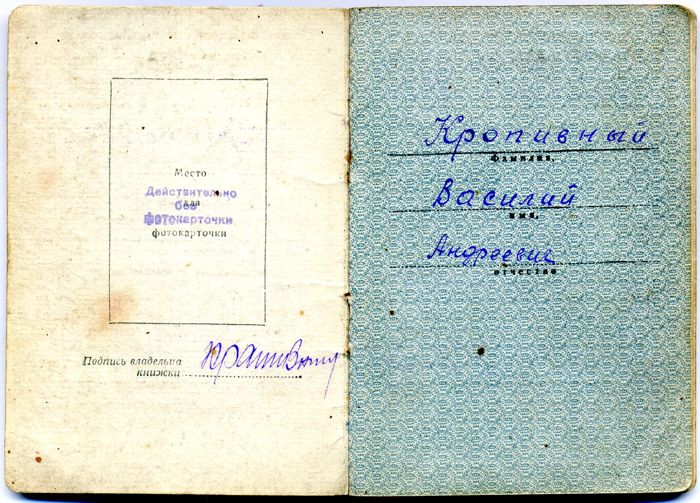 Место
Действительно
для
без
фотокарточки
фотокарточки
Подпись владельца
книжки
Кропивный
фамилия,
Василий
имя,
Андреевич
отчество